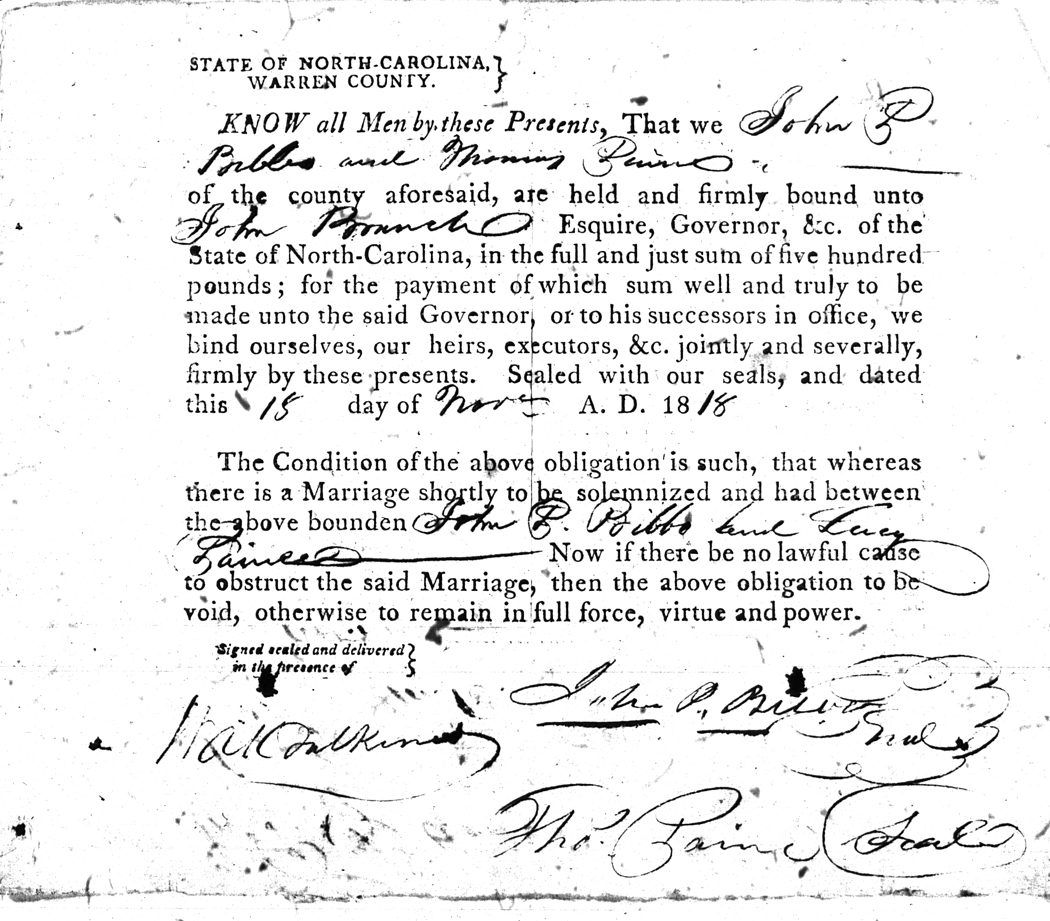 STATE OF NORTH-CAROLINA,
WARREN COUNTY.
KNOW all Men by these Presents, That we John P
Bibbs and Thomas Paine
of the county aforesaid, are held and firmly bound unto
John Branch Esquire, Governor, &c. of the
State of North-Carolina, in the full and just sum of five hundred
pounds; for the payment of which sum well and truly to be
made unto the said Governor, or to his successors in office, we
bind ourselves, our heirs, executors, &c. jointly and severally,
firmly by these presents. Sealed with our seals, and dated
this 18 day of Novr A. D. 1818
The Condition of the above obligation is such, that whereas
there is a Marriage shortly to be solemnized and had between
the above bounden John P. Bibbs and Lucy
Now if there be no lawful cause
to obstruct the said Marriage, then the above obligation to be
void, otherwise to remain in full force, virtue and power.
Signed sealed and delivered
in the presence of
John P. Bibbs Seal
Thos. Paine Seal